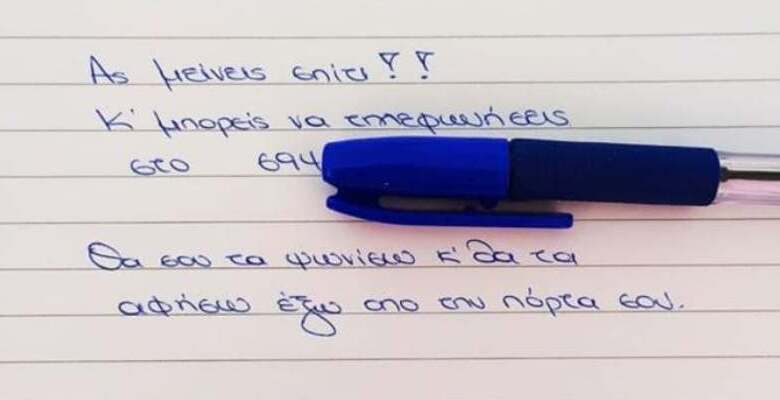 Ας μείνεις σπίτι!!
Κ' μπορείς να τηλεφωνήσεις
στο 694
Θα σου τα ψωνίσω κ' θα τα
αφήσω έξω απο την πόρτα σου.